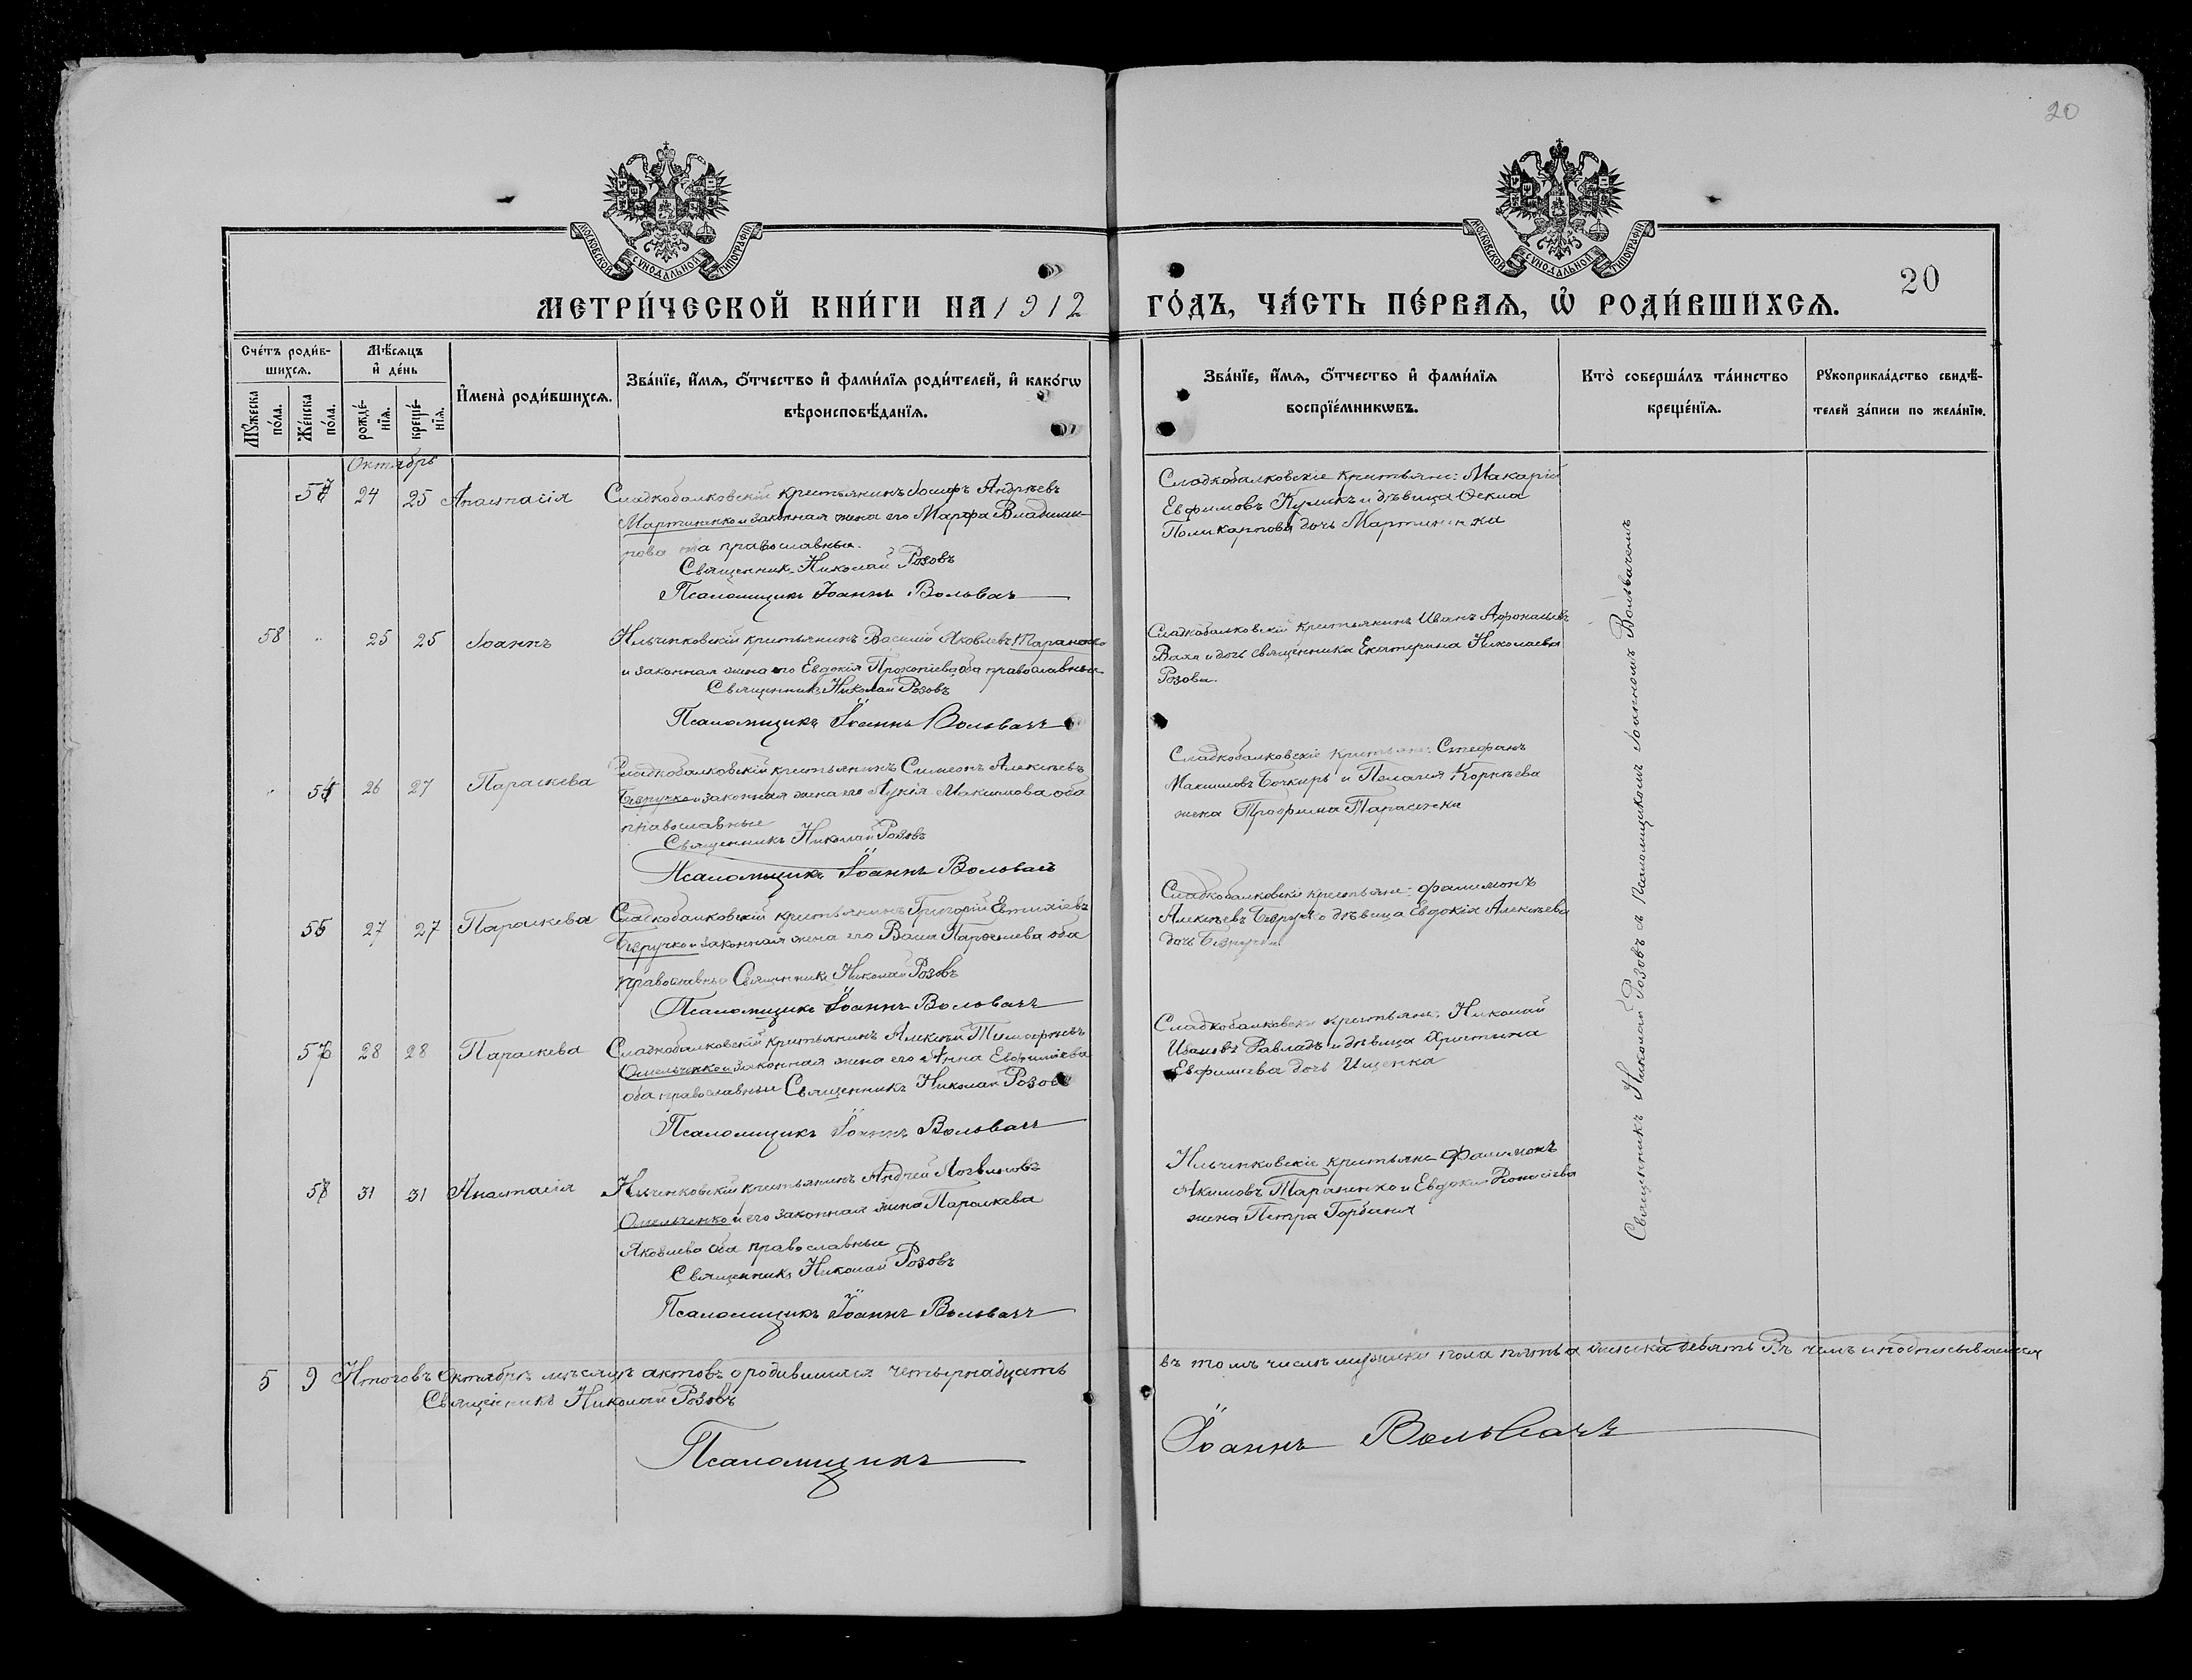 20
МОСКОВСКОЙ СѴНОДАЛЬНОЙ ТИПОГРАФІИ
МОСКОВСКОЙ СѴНОДАЛЬНОЙ ТИПОГРАФІИ
20
МЕТРИ́ЧЕСКОЙ КНИ́ГИ НА 1912
ГО́ДЪ, ЧА́СТЬ ПЕ́РВАѦ, Ѡ҆ РОДИ́ВШИХСѦ.
Сче́тъ роди́в-
шихсѧ.
Мѣ́сѧцъ
и҆ де́нь
Мꙋ́жеска
по́ла.
Же́нска
по́ла.
рожде́-
нїѧ.
креще́-
нїѧ.
И҆мена̀ роди́вшихсѧ.
Зва́нїе, и҆́мѧ, ѻ҆́тчество и҆ фами́лїѧ роди́телей, и҆ како́гѡ
вѣроисповѣ́данїѧ.
Зва́нїе, и҆́мѧ, ѻ҆́тчество и҆ фами́лїѧ
воспрїе́мникѡвъ.
Кто̀ соверша́лъ та́инство
креще́нїѧ.
Рꙋкоприкла́дство свидѣ́-
телей за́писи по жела́нїю.
Октябрь
24 25 Анастасія Сладкобалковскій крестьянинъ Іосифъ Андреевъ
Мартиненко и законная жена его Марфа Владими-
рова оба православные.
Священникъ Николай Розовъ
Псаломщикъ Іоаннъ Вольвачъ
Сладкобалковскіе крестьяне: Макарій
Евфимовъ Куликъ и дѣвица Ѳекла
Поликарпова дочь Мартиненка
58 25 25 Іоаннъ Ильченковскій крестьянинъ Василій Яковлевъ Тараненко
и законная жена его Евдокія Прокопіева оба православные
Священникъ Николай Розовъ
Псаломщикъ Іоаннъ Вольвачъ
Сладкобалковскій крестьянинъ Иванъ
и дочь священника Екатерина Николаева
Розова.
26 27 Параскева Сладкобалковскій крестьянинъ Симеонъ Алексѣевъ
Безручко и законная жена его Лукія Максимова оба
православные
Священникъ Николай Розовъ
Псаломщикъ Іоаннъ Вольвачъ
Сладкобалковскіе крестьяне: Стефанъ
Максимовъ Бочкирь и Пелагія Корнѣева
жена Трофима Тарасенка
27 27 Параскева Сладкобалковскій крестьянинъ Григорій Евтихіевъ
Безручко и законная жена его Васса Парѳеніева оба
православные Священникъ Николай Розовъ
Псаломщикъ Іоаннъ Вольвачъ
Сладкобалковскіе крестьяне: Филимонъ
Алексѣевъ Безручко дѣвица Евдокія Алексѣева
дочь Безручка
28 28 Параскева Сладкобалковскій крестьянинъ Алексѣй Тимофѣевъ
Омельченко и законная жена его Анна Евфиміева
оба православные Священникъ Николай Розовъ
Псаломщикъ Іоаннъ Вольвачъ
Сладкобалковскіе крестьяне: Николай
Ивановъ и дѣвица Христина
Евфиміева дочь Ищенка
31 31 Анастасія Ильченковскій крестьянинъ Андрей Логвиновъ
Омельченко и его законная жена Параскева
Яковлева оба православные
Священникъ Николай Розовъ
Псаломщикъ Іоаннъ Вольвачъ
Ильченковскіе крестьяне Филимонъ
Акимовъ Тараненко и Евдокія
жена Петра Горбаня
Священникъ Николай Розовъ съ Псаломщикомъ Іоанномъ Вольвачемъ
5 9 Итого въ Октябрѣ мѣсяцѣ актовъ о родившихся четырнадцать
въ томъ числѣ мужеска пола пять а женска девять въ чемъ и подписываемся
Священникъ Николай Розовъ
Псаломщикъ
Іоаннъ Вольвачъ